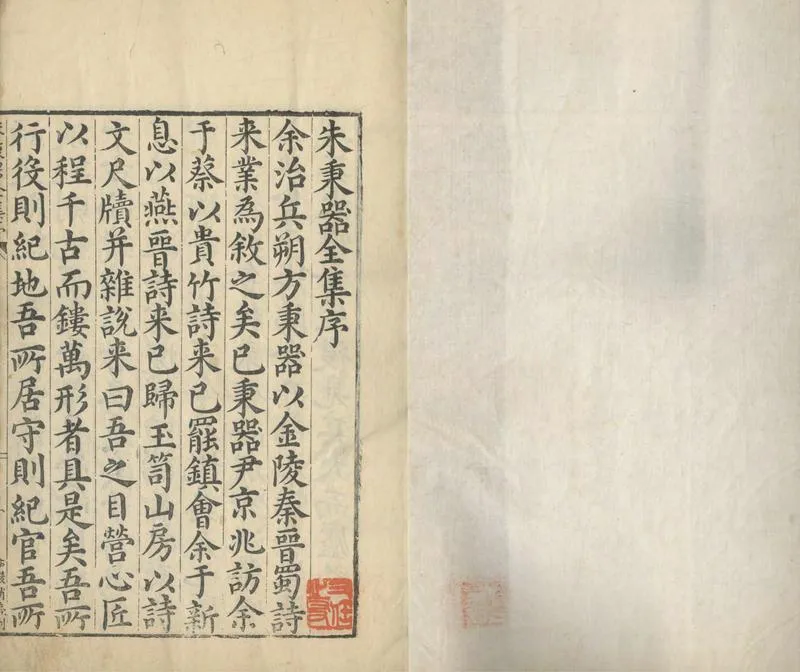 朱秉器全集序
余治兵朔方秉器以金陵秦晉蜀詩
来業為敘之矣已秉器尹京兆訪余
于蔡以貴竹詩来已罷鎮會余于新
息以燕晉詩来已歸玉笥山房以詩
文尺牘并雜說来曰吾之目營心匠
以程千古而鏤萬形者具是矣吾所
行役則紀地吾所居守則紀官吾所